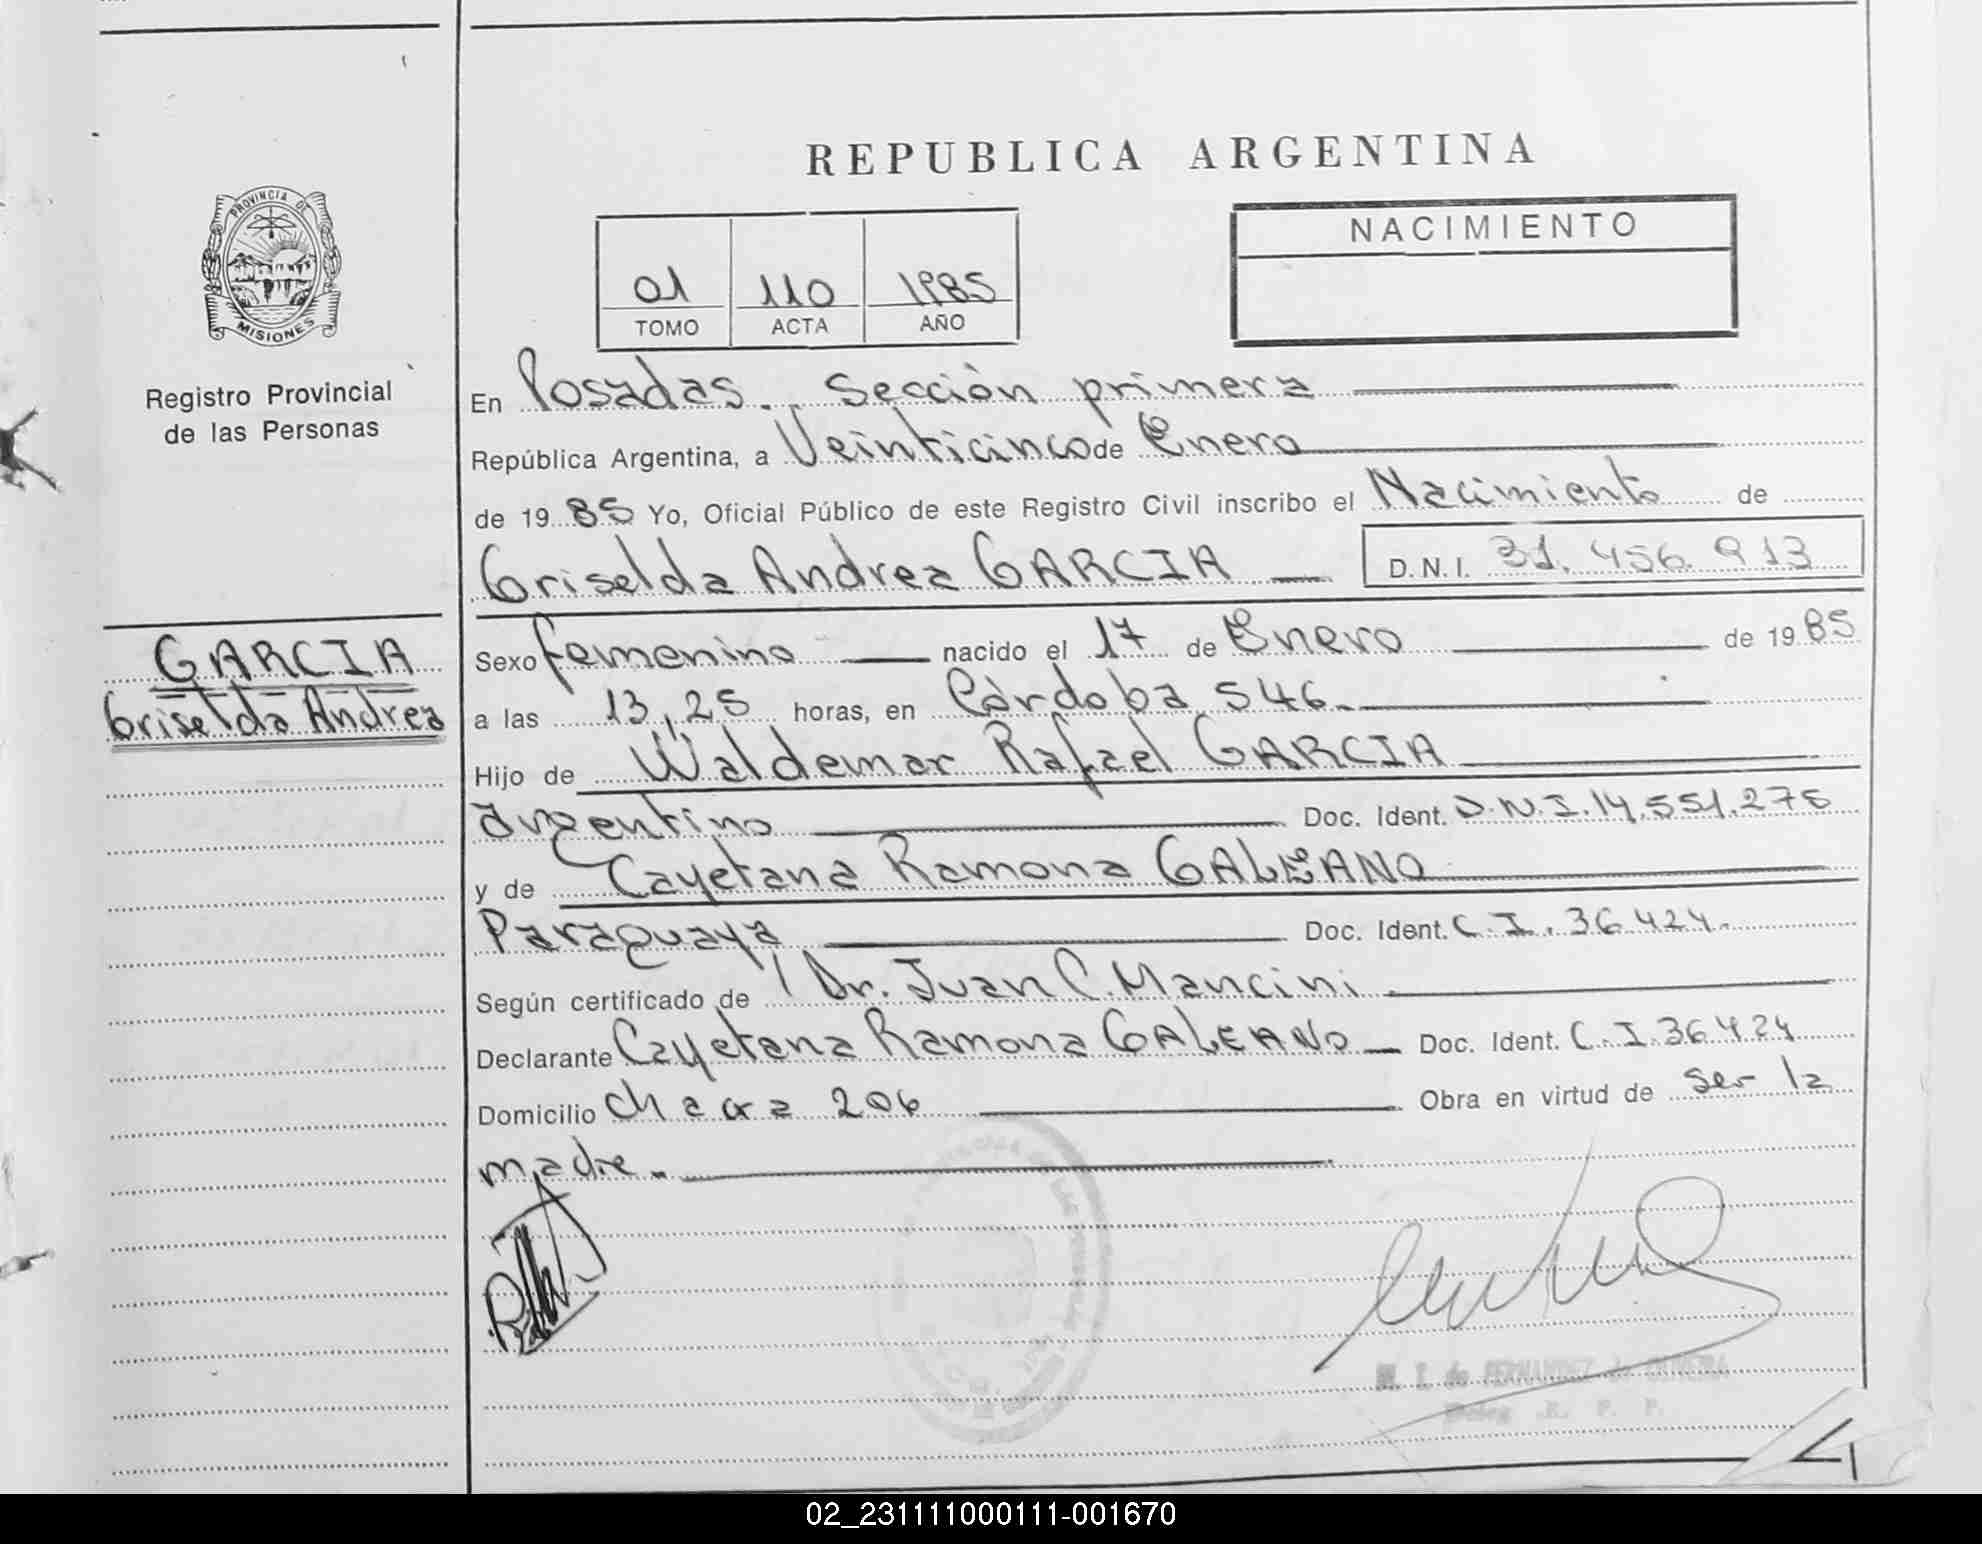 REPUBLICA ARGENTINA
PROVINCIA DE
MISIONES
Registro Provincial
de las Personas
NACIMIENTO
01 110 1985
TOMO ACTA AÑO
En Posadas. Sección primera
República Argentina, a Veinticinco de Enero
de 1985 Yo, Oficial Público de este Registro Civil inscribo el Nacimiento de
Griselda Andrea GARCIA D.N.I. 31.456.913
GARCIA
Griselda Andrea
Sexo femenino nacido el 17 de Enero de 1985
a las 13,25 horas, en Córdoba 546.
Hijo de Waldemar Rafael GARCIA
argentino Doc. Ident. D.N.I.14.551.275
y de Cayetana Ramona GALEANO
Paraguaya Doc. Ident. C.I. 36424.
Según certificado de Dr. Juan C. Mancini.
Declarante Cayetana Ramona GALEANO Doc. Ident. C.I.36424
Domicilio Chacra 206 Obra en virtud de ser la
madre.
M. I. de FERNANDEZ de OLIVEIRA
R. P. P.
02_231111000111-001670